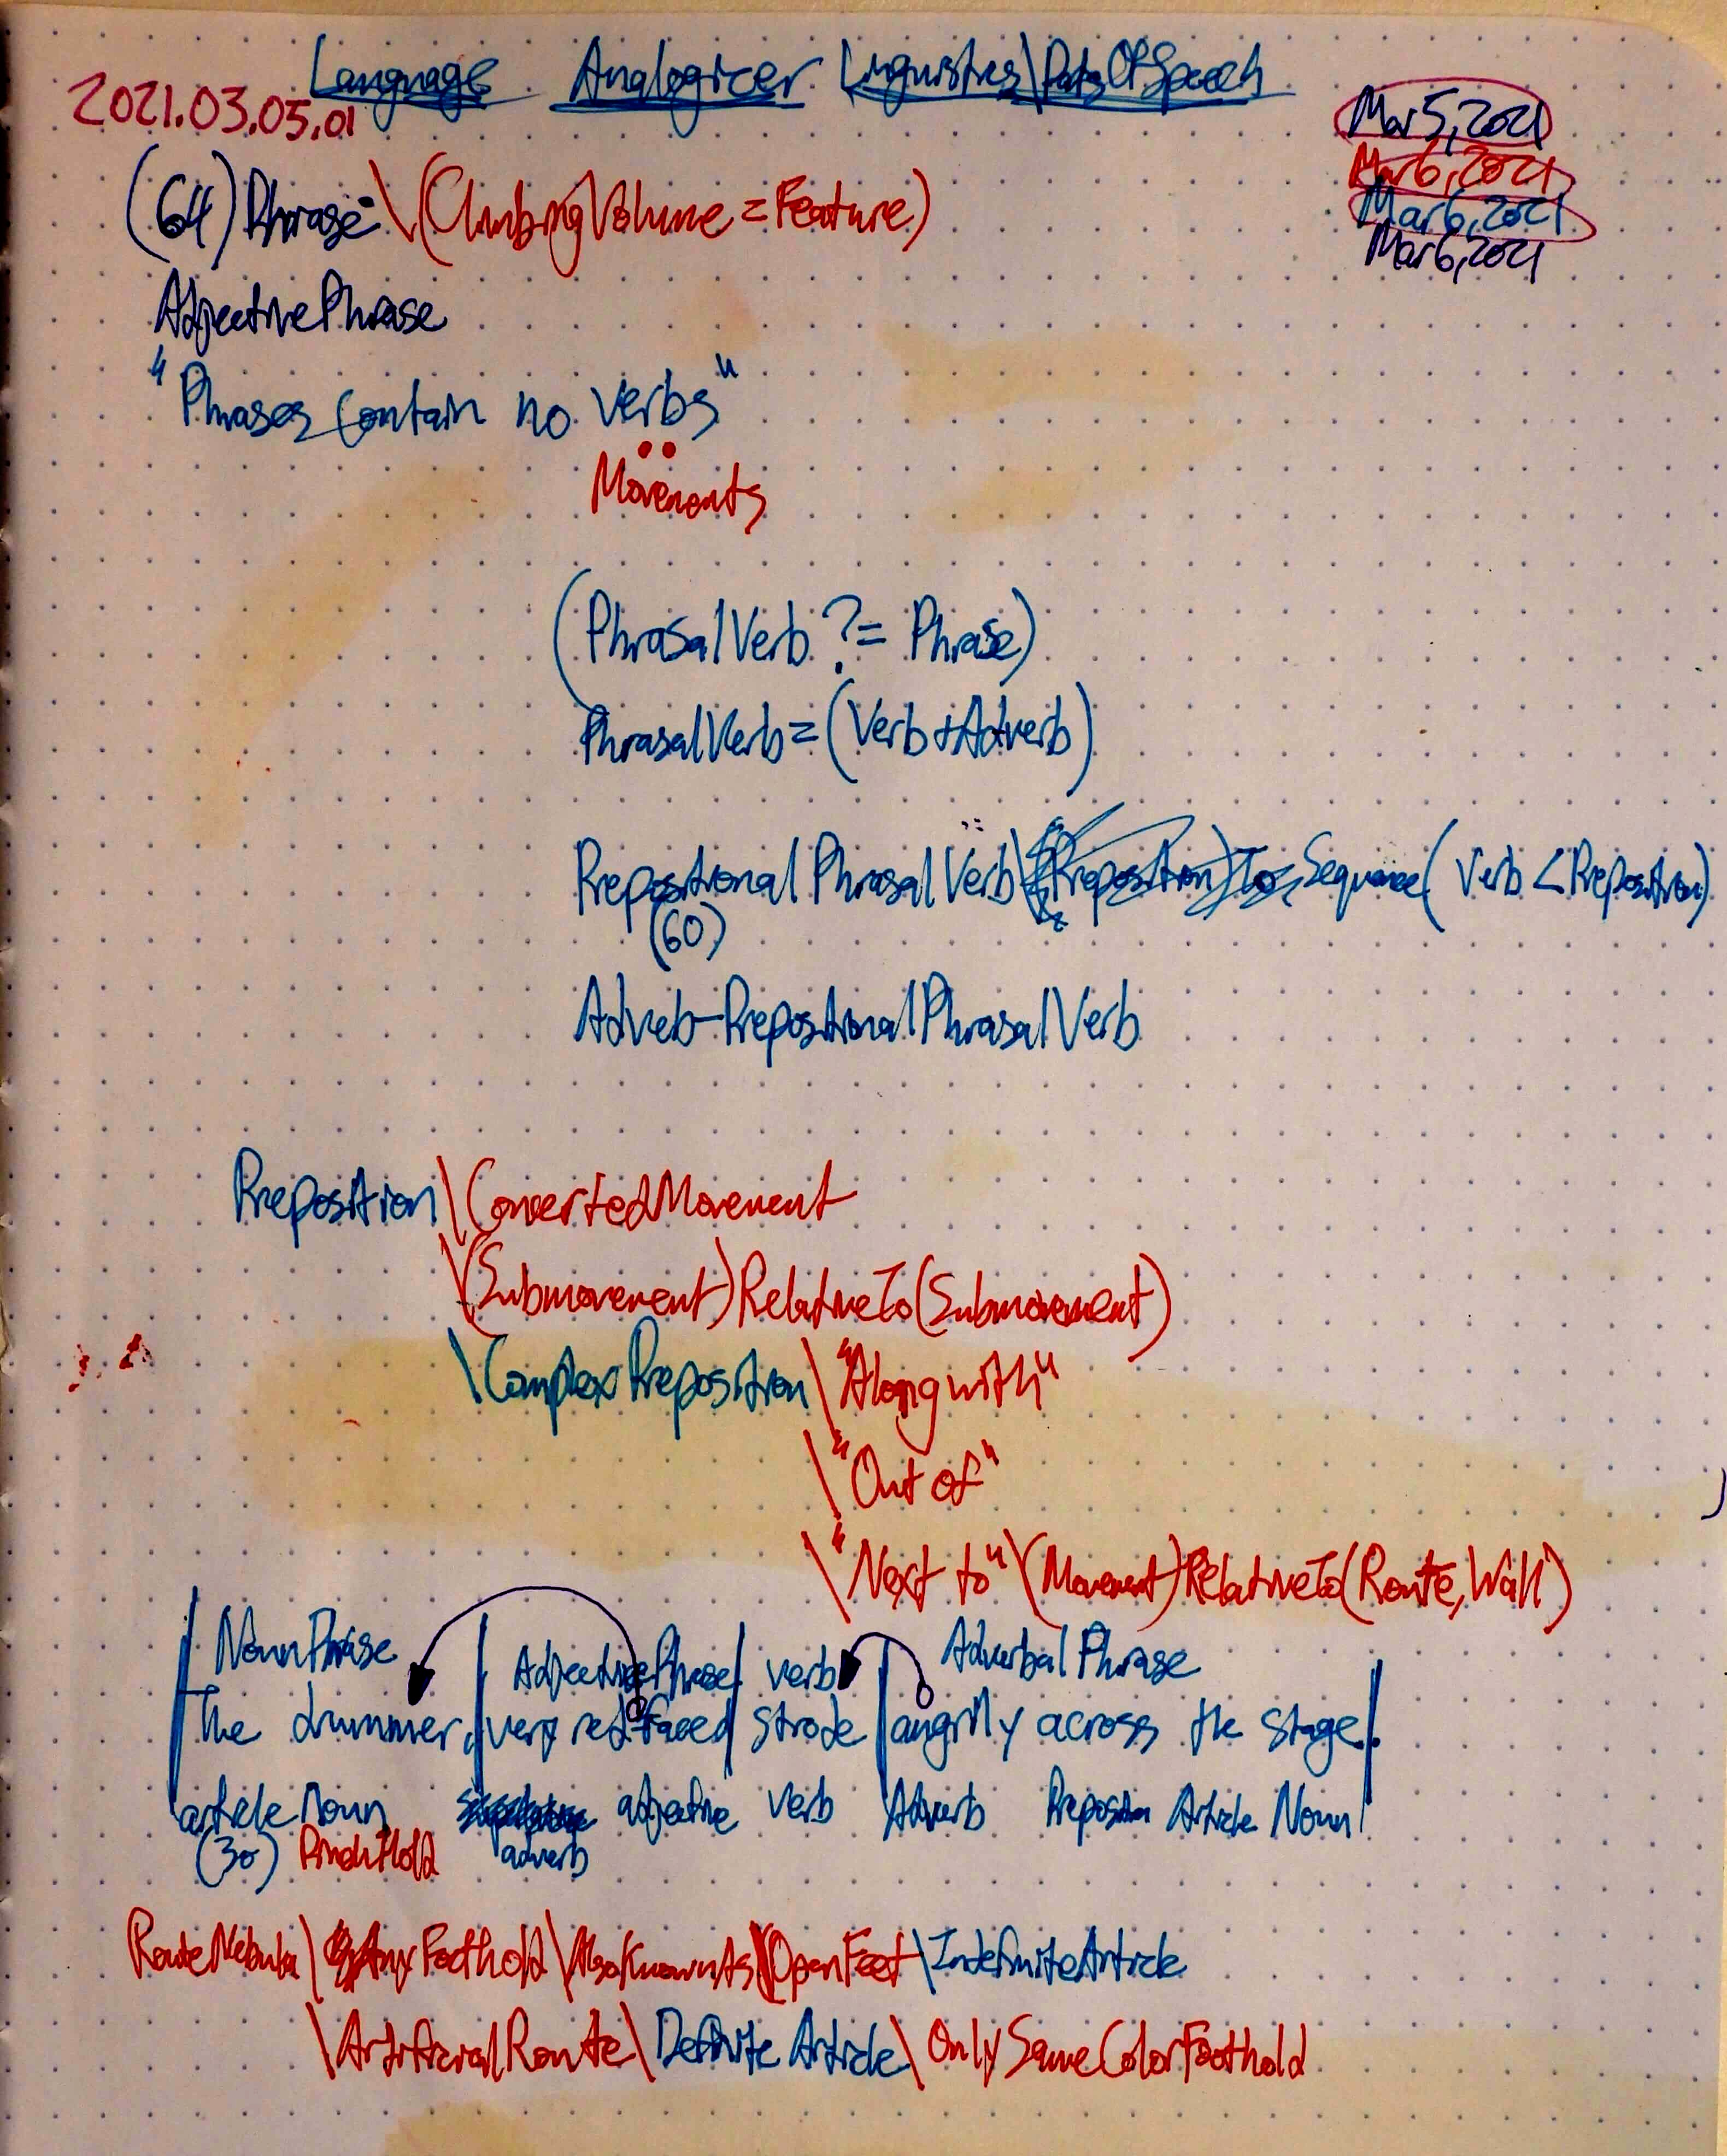 Language Analogicer Linguistics\PartsOfSpeech
2021.03.05.01
Mar 5, 2021
Mar 6, 2021
Mar 6, 2021
Mar 6, 2021
(64) Phrase \(ClimbingVolume = Feature)
AdjectivePhrase
"Phrases contain no verbs"
Movements
(PhrasalVerb ?= Phrase)
PhrasalVerb = (Verb + Adverb)
Prepositional Phrasal Verb \ (Preposition) To Sequence( Verb < Preposition)
(60)
Adverb-PrepositionalPhrasalVerb
Preposition \ConvertedMovement
\(Submovement)RelativeTo(Submovement)
\ComplexPreposition \"Along with"
\"Out of"
\"Next to" \(Movement)RelativeTo(Route, Wall)
NounPhrase AdjectivePhrase verb Adverbal Phrase
The drummer, very red-faced strode angrily across the stage.
article Noun adjective verb Adverb Preposition Article Noun
(30) PinchHold adverb
RouteNebula \ AnyFoothold \AlsoKnownAs\OpenFeet \IndefiniteArticle
\ArtificialRoute \Definite Article \OnlySameColorFoothold